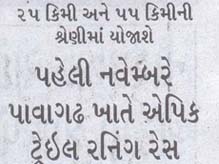 ૨૫ કિમી અને ૫૫ કિમીની
શ્રેણીમાં યોજાશે
પહેલી નવેમ્બરે
પાવાગઢ ખાતે એપિક
ટ્રેઇલ રનિંગ રેસ